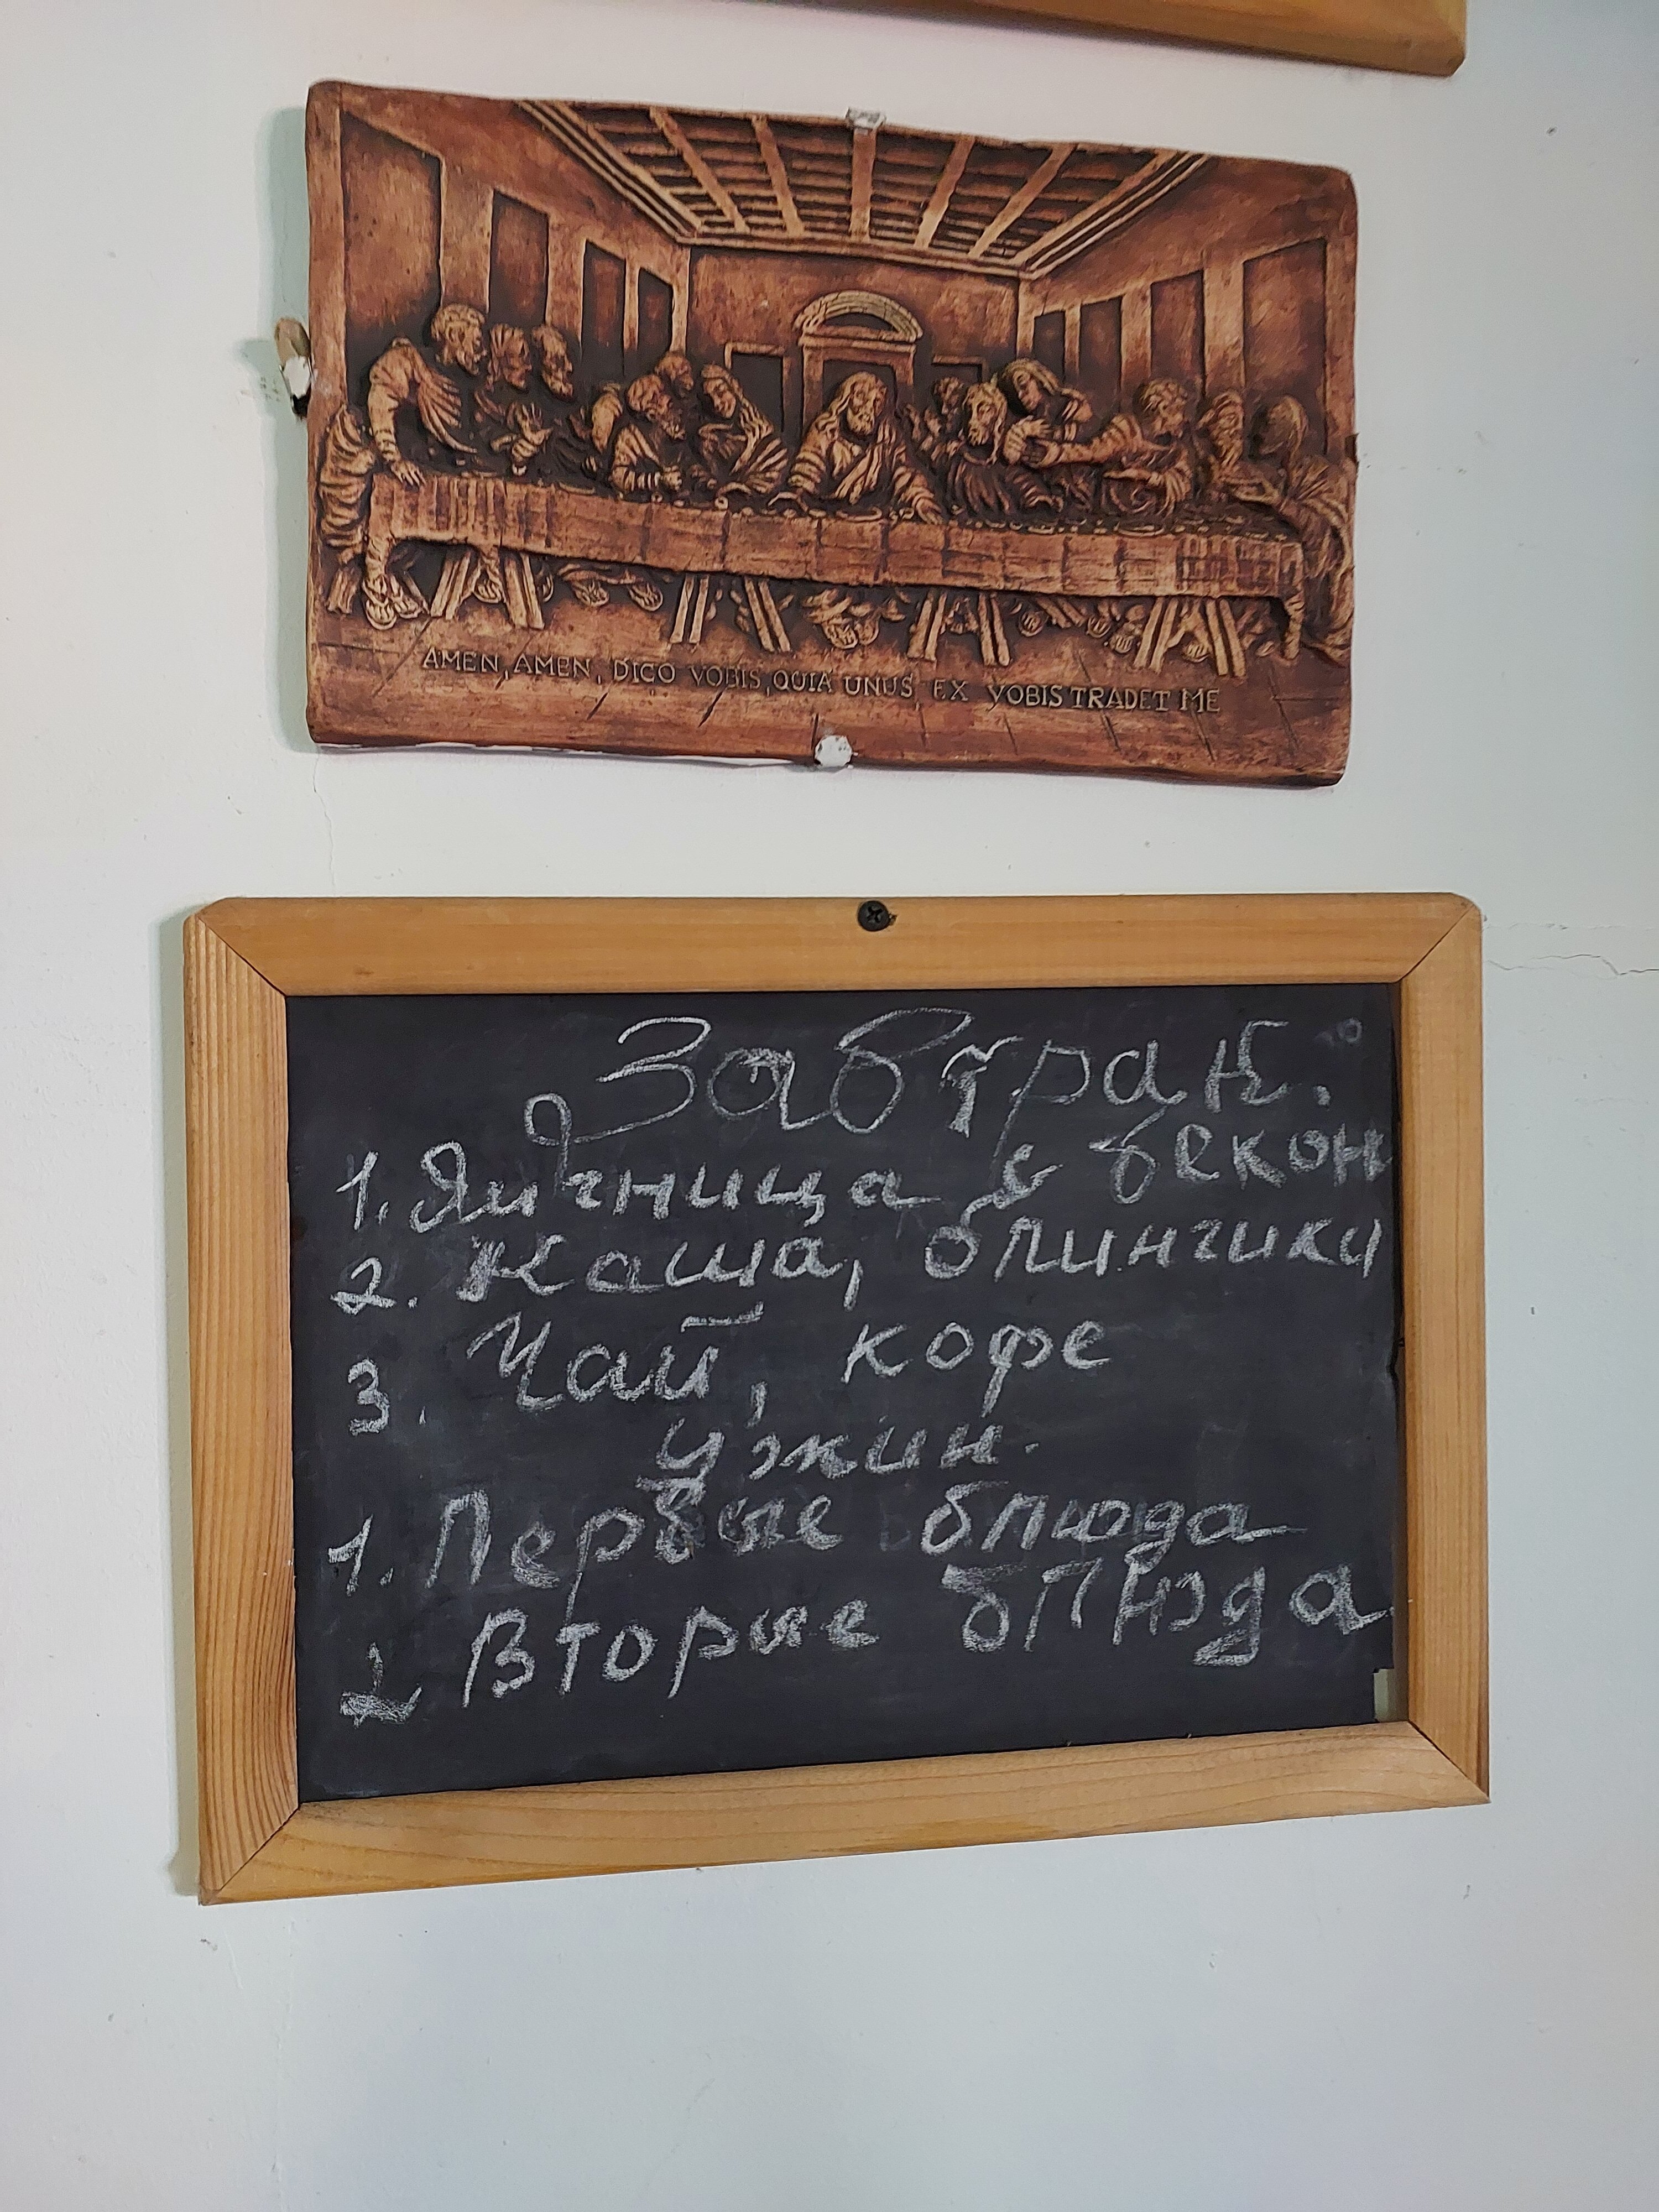 AMEN, AMEN, DICO VOBIS, QUIA UNUS EX VOBIS TRADET ME
Завтрак.
1. Яичница с бекон
2. Каша, блинчики
3. Чай, кофе
Ужин.
1. Первые блюда
2 Вторые блюда